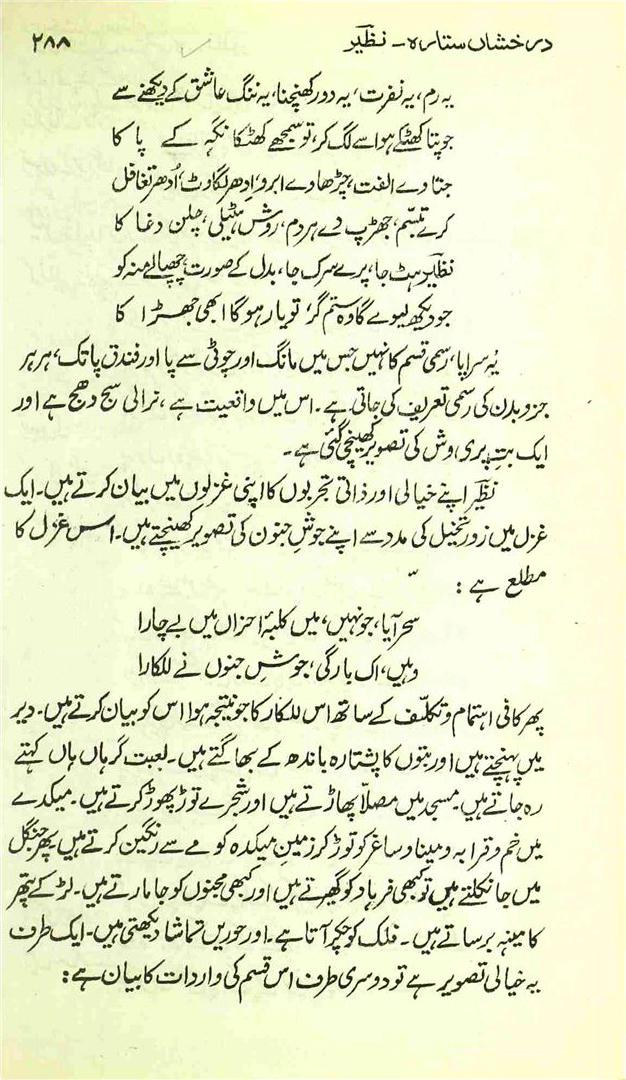 درخشاں ستارہ - نظیرؔ ۲۸۸
یہ رم، یہ نفرت، یہ دور کھنچنا، یہ ننگ عاشق کے دیکھنے سے
جو پتا کھٹکے ہوا سے لگ کر، تو سمجھے کھٹکا نگہ کے پا کا
جتا دے الفت، چڑھا دے ابرو، اِدھر لگاوٹ، اُدھر تغافل
کرے تبسّم، جھڑپ دے ہر دم، روش ہٹیلی، چلن دغا کا
نظیرؔ ہٹ جا، پرے سرک جا، بدل کے صورت، چھپا لے منہ کو
جو دیکھ لیوے گا وہ ستم گر، تو یار ہوگا ابھی جھڑا کا
یہ سراپا، رسمی قسم کا نہیں جس میں مانگ اور چوٹی سے پا اور فندق پا تک، ہر ہر
جزو بدن کی رسمی تعریف کی جاتی ہے۔ اس میں واقعیت ہے، نرالی سج دھج ہے اور
ایک بتِ پری وش کی تصویر کھینچی گئی ہے۔
نظیرؔ اپنے خیالی اور ذاتی تجربوں کا اپنی غزلوں میں بیان کرتے ہیں۔ ایک
غزل میں زورِ تخیل کی مدد سے اپنے جوشِ جنون کی تصویر کھینچتے ہیں۔ اس غزل کا
مطلع ہے :
سحر آیا، جو نہیں، میں کلبۂ احزاں میں بے چارا
وہیں، اک بارگی، جوشِ جنوں نے للکارا
پھر کافی اہتمام و تکلّف کے ساتھ اس للکار کا جو نتیجہ ہوا اس کو بیان کرتے ہیں۔ دیر
میں پہنچتے ہیں اور بتوں کا پشتارہ باندھ کے بھاگتے ہیں۔ لعبت گر ہاں ہاں کہتے
رہ جاتے ہیں۔ مسجد میں مصلّا پھاڑتے ہیں اور شجرے توڑ پھوڑ کرتے ہیں۔ میکدے
میں خم و قرابہ و مینا و ساغر کو توڑ کر زمینِ میکدہ کو مے سے رنگین کرتے ہیں پھر جنگل
میں جا نکلتے ہیں تو کبھی فرہاد کو گھیرتے ہیں اور کبھی مجنوں کو جا مارتے ہیں۔ لڑکے پتھر
کا مینہ برساتے ہیں۔ فلک کو چکر آتا ہے۔ اور حوریں تماشا دیکھتی ہیں۔ ایک طرف
یہ خیالی تصویر ہے تو دوسری طرف اس قسم کی واردات کا بیان ہے :